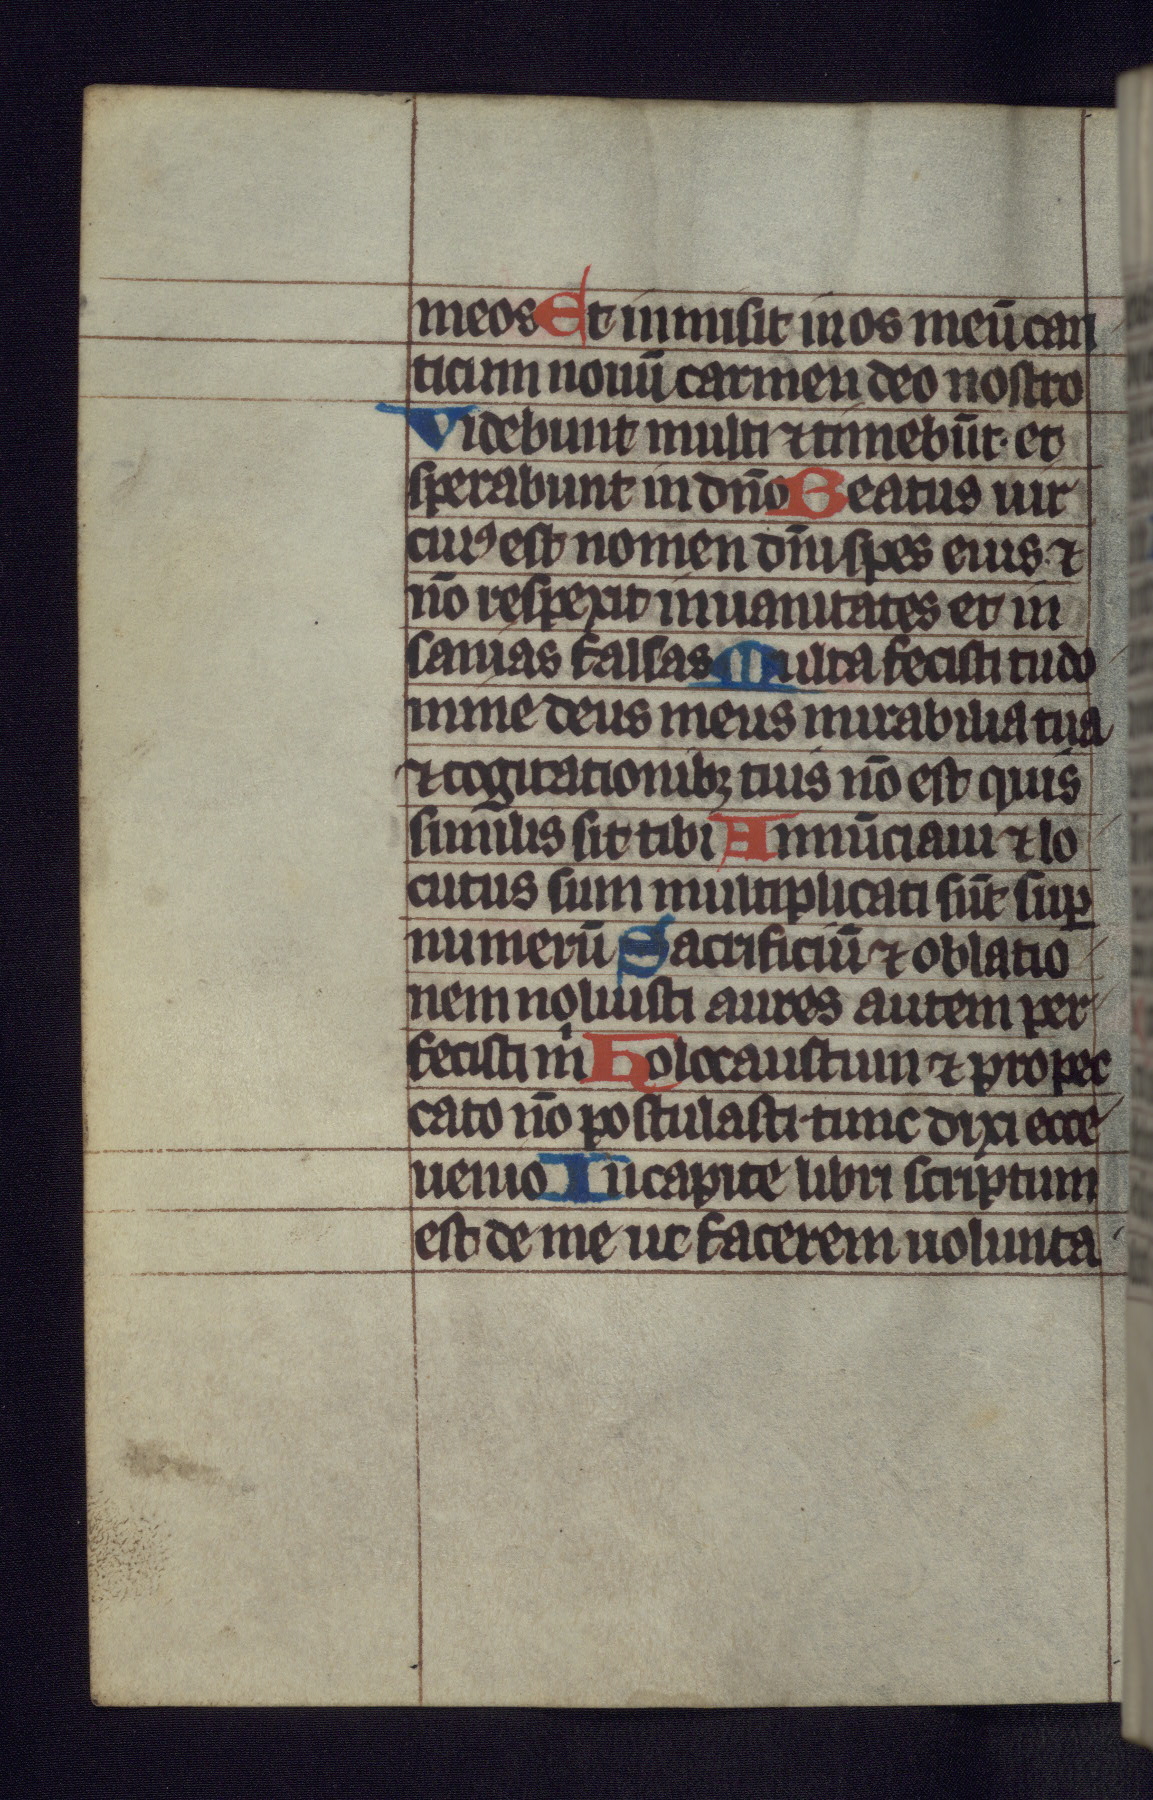 meos Et inmisit in os meū can
ticum nouū carmen deo nostro
Videbunt multi ⁊ timebūt· et
sperabunt in dn̄o Beatus uir
cuiꝰ est nomen dn̄i spes eius· ⁊
nō respexit in uanitates et in
sanias falsas Multa fecisti tu do
mine deus meus mirabilia tua
⁊ cogitationibꝫ tuis nō est quis
similis sit tibi Annūciaui ⁊ lo
cutus sum multiplicati sūt suꝑ
numerū Sacrificiū ⁊ oblatio
nem noluisti aures autem per
fecisti m̍ Holocaustum ⁊ pro pec
cato nō postulasti· tunc dixi ecce
uenio In capite libri scriptum
est de me ut facerem uolunta